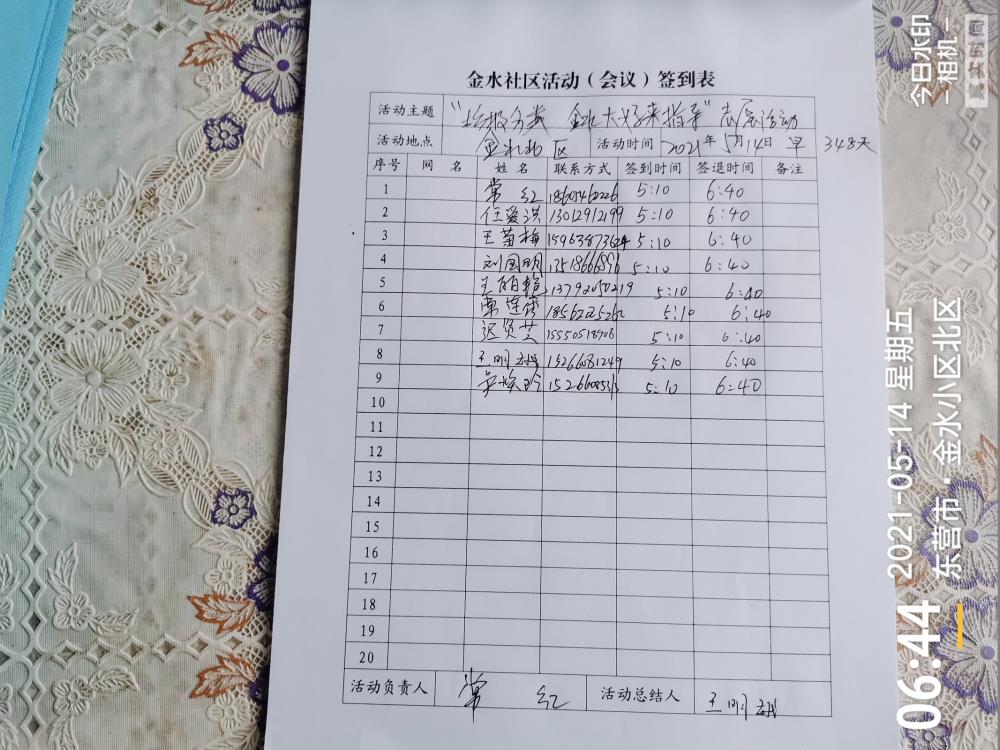 金水社区活动(会议)签到表
活动主题 “垃圾分类 金水大嫂来指导”志愿活动
活动地点 金水北区 活动时间 2021年5月14日 早 348天
序号 网名 姓名 联系方式 签到时间 签退时间 备注
1 常红 5:10 6:40
2 任爱洪 13012912199 5:10 6:40
3 王菊梅 15963873624 5:10 6:40
4 刘国明 13518666896 5:10 6:40
5 王丽艳 13792050219 5:10 6:40
6 5:10 6:40
7 迟贤芸 15550518906 5:10 6:40
8 王明 15266081249 5:10 6:40
9 5:10 6:40
10
11
12
13
14
15
16
17
18
19
20
活动负责人 常红 活动总结人 王明
今日水印
相机
真实时间
06:44
2021-05-14 星期五
东营市·金水小区北区